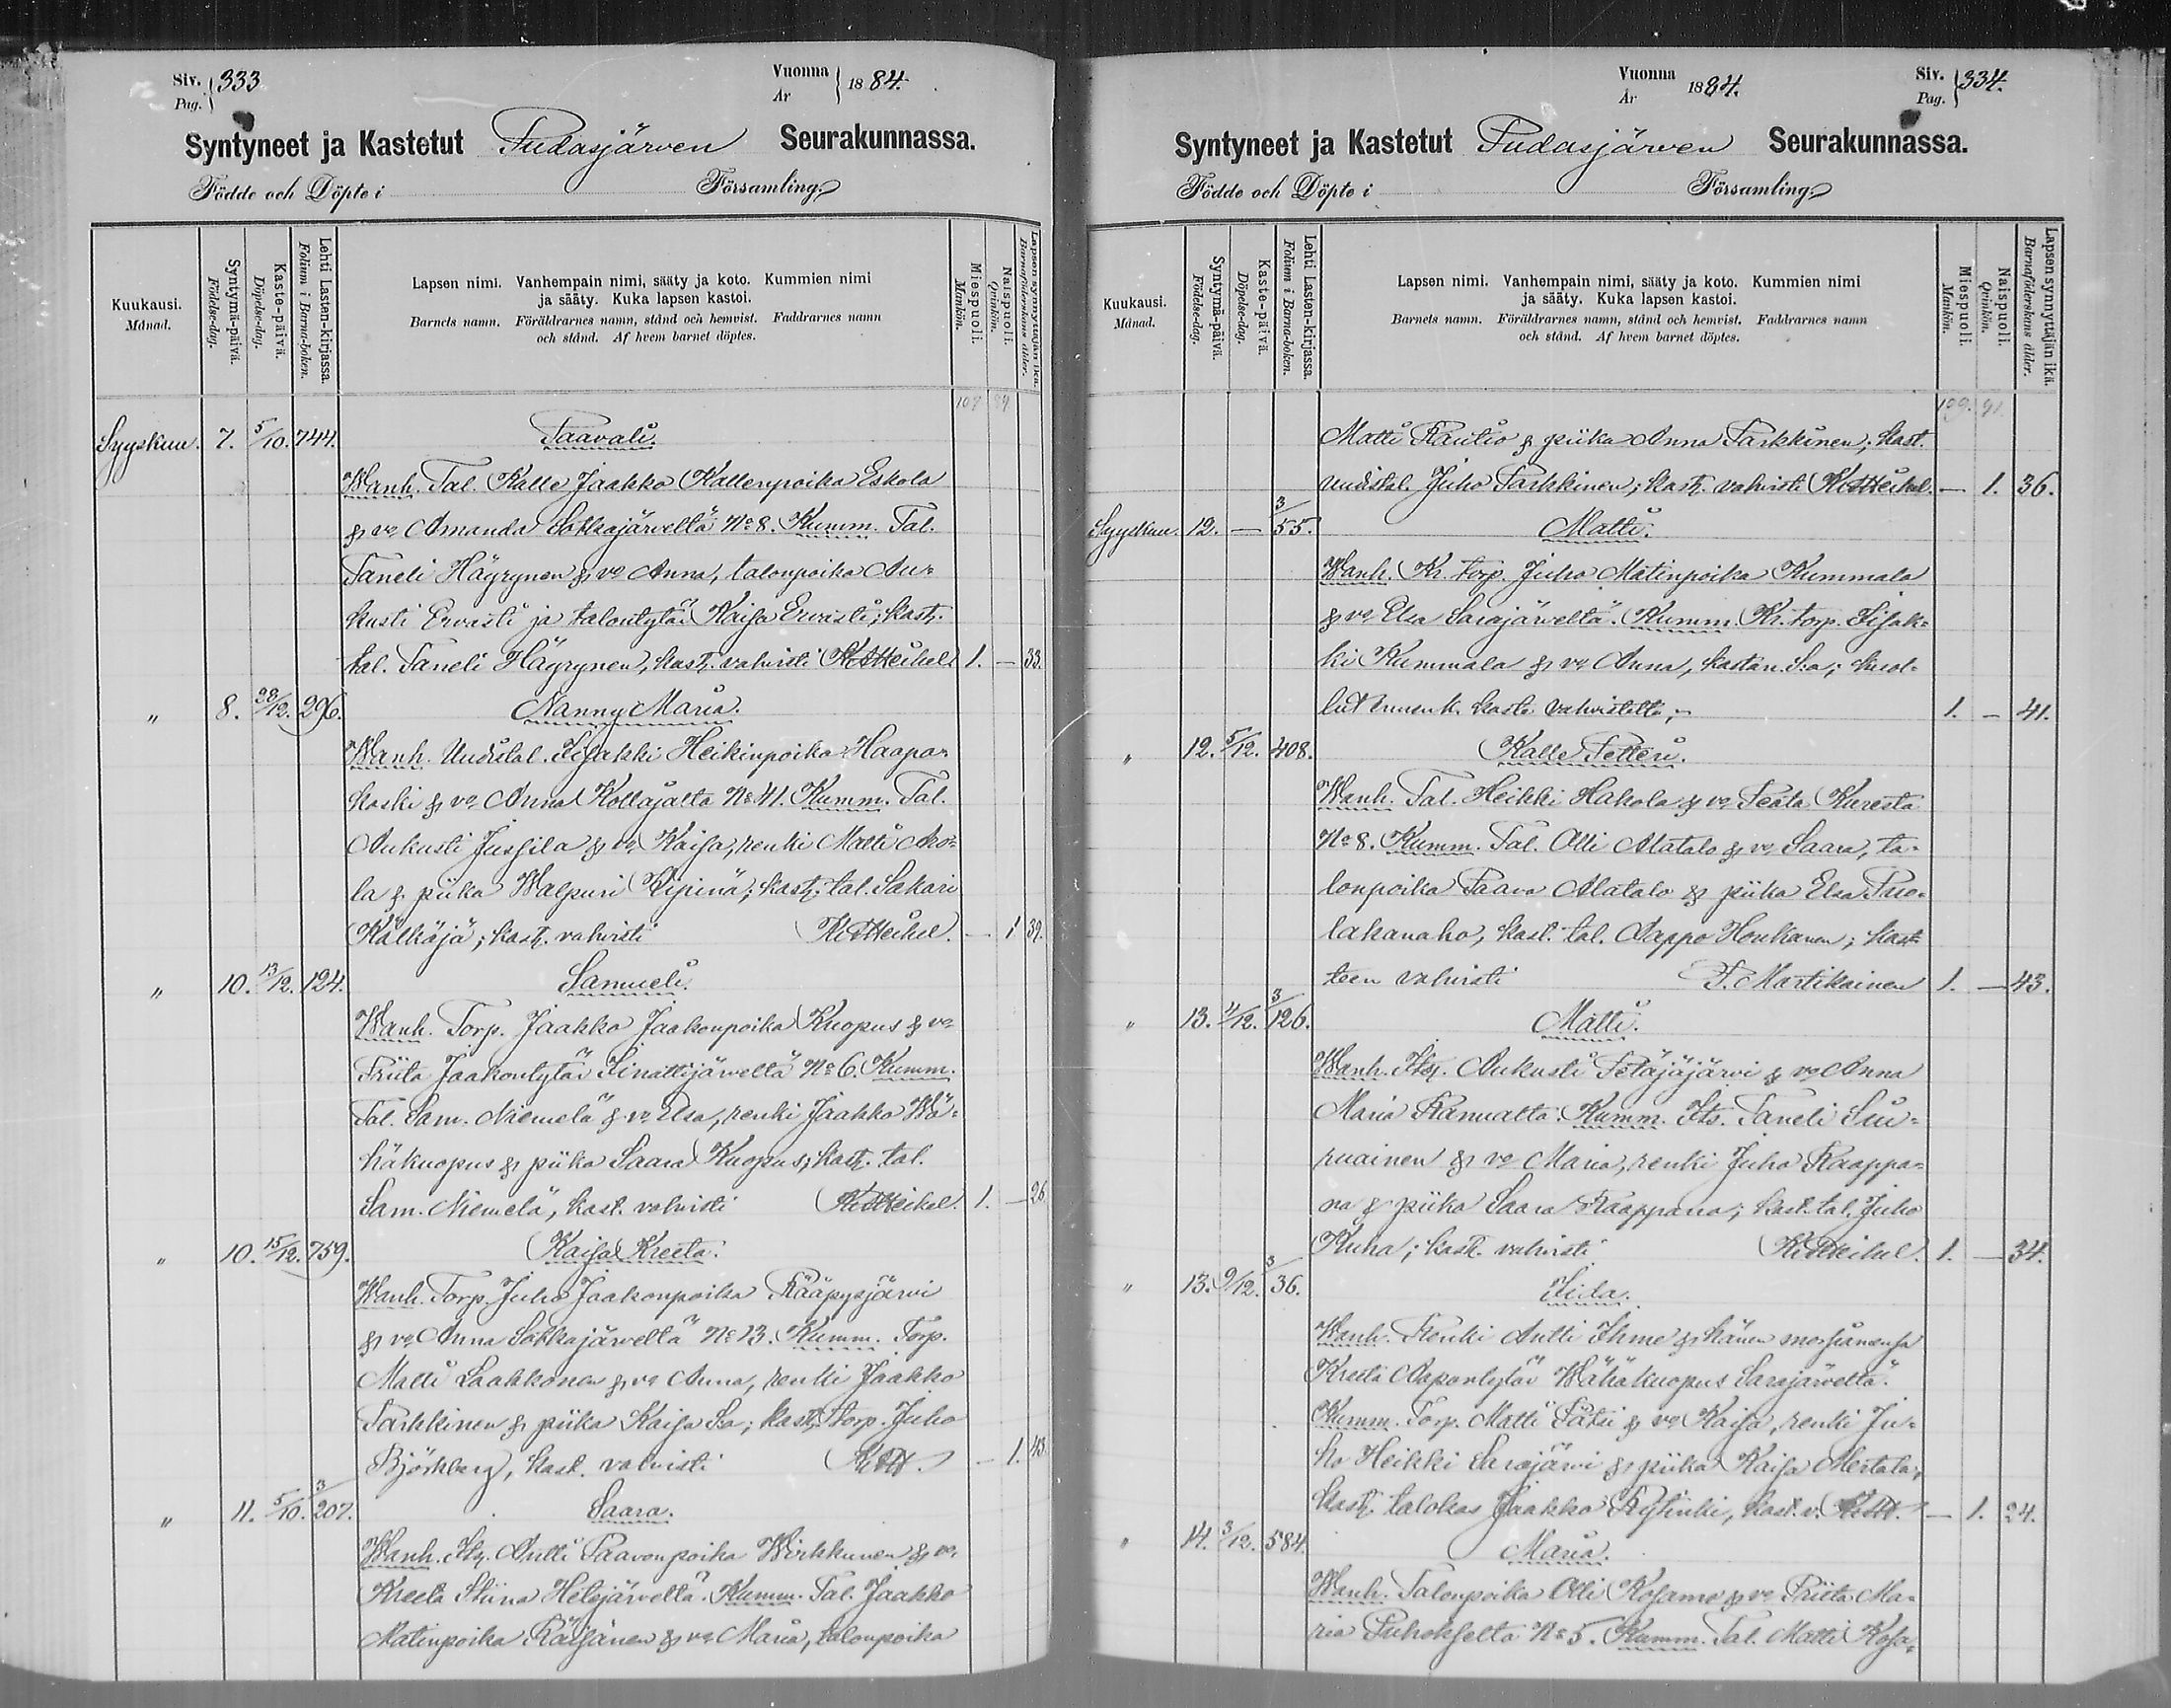 Siv. 333
Pag.
Vuonna 1884.
År
Syntyneet ja Kastetut Pudasjärven Seurakunnassa.
Födde och Döpte i Församling
Kuukausi.
Månad.
Syntymä-päivä.
Födelse-dag.
Kaste-päivä.
Döpelse-dag.
Lehti Lasten-kirjassa.
Folium i Barna-boken.
Lapsen nimi. Vanhempain nimi, sääty ja koto. Kummien nimi
ja sääty. Kuka lapsen kastoi.
Barnets namn. Föräldrarnes namn, stånd och hemvist. Faddrarnes namn
och stånd. Af hvem barnet döptes.
Miespuoli.
Mankön.
Naispuoli.
Qvinkön.
Lapsen synnyttäjän ikä.
Barnaföderskans ålder.
Syyskuu. 7. 5/10. 744. Paavali.
Wanh. Tal. Kalle Jaakko Kallenpoika Eskola
& vo Amanda Sotkajärveltä No 8. Kumm. Tal.
Taneli Häyrynen & vo Anna, talonpoika Au-
kusti Ervasti ja talontytär Kaisa Ervasti; kast.
tal. Taneli Häyrynen, kast. vahvisti K. Heikel 1. — 33.
" 8. 28/12. 296. Nanny Maria.
Wanh. Uudistal. Iisakki Heikinpoika Haapa-
koski & vo Anna Kollajalta No 41. Kumm. Tal.
Aukusti Jussila & vo Kaisa, renki Matti Aho-
la & piika Walpuri Riipinä; kast. tal. Sakari
Kälkäjä; kast. vahvisti Heikel. — 1 39.
" 10. 13/12. 124. Samueli.
Wanh. Torp. Jaakko Jaakonpoika Kuopus & vo
Priita Jaakontytär Iinattijärveltä No 6. Kumm.
Tal. Sam. Niemelä & vo Elsa, renki Jaakko Wä-
häkuopus & piika Saara Kuopus; kast. tal.
Sam. Niemelä, kast. vahvisti Heikel. 1. — 26
" 10. 15/12. 759. Kaisa Kreeta.
Wanh. Torp. Juho Jaakonpoika Rääpysjärvi
& vo Anna Sotkajärveltä No 13. Kumm. Torp.
Matti Laakkonen & vo Anna, renki Jaakko
Parkkinen & piika Kaisa S:a; kast. torp. Juho
Björkberg, kast. vahvisti — 1. 43.
" 11. 5/10. 3/207. Saara.
Wanh. Its. Antti Paavonpoika Wirkkunen & vo
Kreeta Stiina Hetejärveltä. Kumm. Tal. Jaakko
Matinpoika Räisänen & vo Maria, talonpoika
Vuonna 1884.
År
Siv. 334.
Pag.
Syntyneet ja Kastetut Pudasjärven Seurakunnassa.
Födde och Döpte i Församling
Kuukausi.
Månad.
Syntymä-päivä.
Födelse-dag.
Kaste-päivä.
Döpelse-dag.
Lehti Lasten-kirjassa.
Folium i Barna-boken.
Lapsen nimi. Vanhempain nimi, sääty ja koto. Kummien nimi
ja sääty. Kuka lapsen kastoi.
Barnets namn. Föräldrarnes namn, stånd och hemvist. Faddrarnes namn
och stånd. Af hvem barnet döptes.
Miespuoli.
Mankön.
Naispuoli.
Qvinkön.
Lapsen synnyttäjän ikä.
Barnaföderskans ålder.
109. 91.
Matti Rautio & piika Anna Parkkinen; kast.
uudistal. Juho Parkkinen; kast. vahvisti Heikel. — 1. 36.
Syyskuu. 12. — 3/55. Matti.
Wanh. Kr. torp. Juho Matinpoika Kummala
& vo Elsa Sarajärveltä. Kumm. Kr. torp. Iisak-
ki Kummala & vo Anna, kastan. S:a; kuol-
lut ennenk. kaste vahvistetti.— 1. — 41.
" 12. 5/12. 408. Kalle Petteri.
Wanh. Tal. Heikki Hakola & vo Peata Kuresta
No 8. Kumm. Tal. Olli Alatalo & vo Saara, ta-
lonpoika Paavo Alatalo & piika Elsa Puo-
lakanaho, kast. tal. Aappo Honkanen; kas-
teen vahvisti P. Martikainen 1. — 43.
" 13. /12. 3/126. Matti.
Wanh. Its. Aukusti Petäjäjärvi & vo Anna
Maria Ranualta. Kumm. Its. Taneli Siu-
ruainen & vo Maria, renki Juho Kaappa-
na & piika Saara Kaappana; kast. tal. Juho
Kuha; kast. vahvisti Heikel. 1. — 34.
" 13. 9/12. 3/36. Iida.
Wanh. Renki Antti Ihme & hänen morsiamensa
Kreeta Aapontytär Wähäkuopus Sarajärveltä.
Kumm. Torp. Matti Pätsi & vo Kaisa, renki Ju-
ho Heikki Sarajärvi & piika Kaisa Mertala,
kast. talokas Jaakko Rytinki, kast. v. — 1. 24.
" 14. 3/12. 584. Maria.
Wanh. Talonpoika Olli Kosamo & vo Priita Ma-
ria Puhokselta No 5. Kumm. Tal. Matti Kosa-